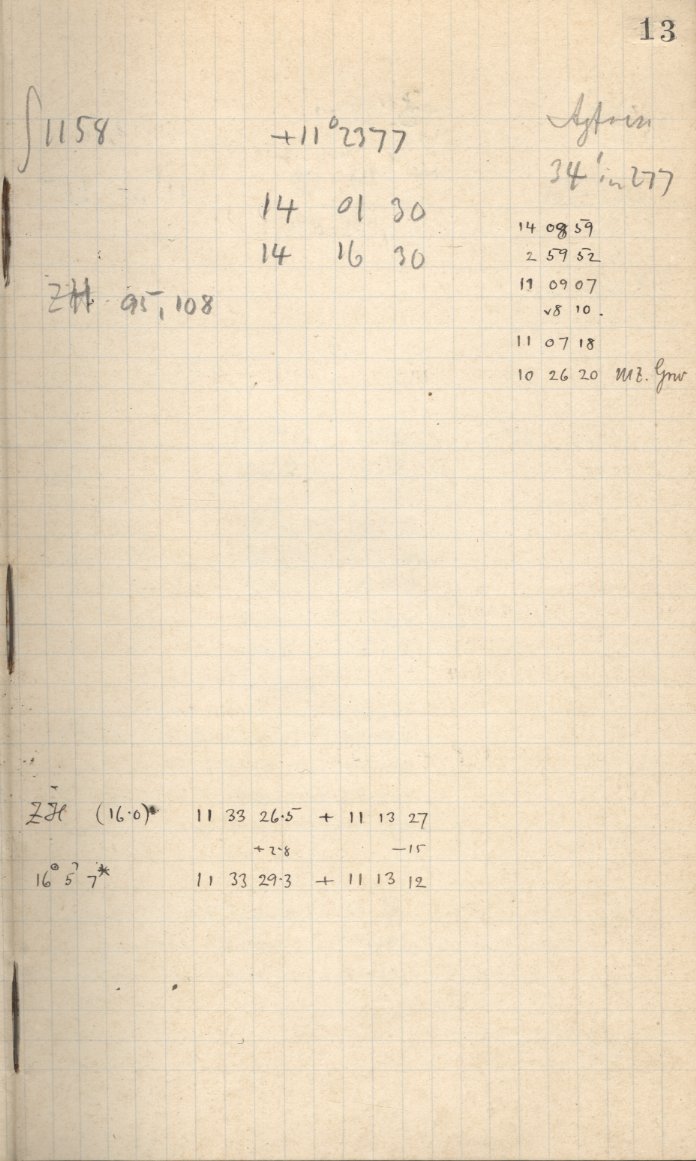 13
∫1158 +11°2377
34' in 277
14 01 30
14 16 30
ZH 95, 108
14 08 59
2 59 52
11 09 07
10.
11 07 18
10 26 20 MZ. Grw
ZH (16.0)* 11 33 26.5 + 11 13 27
+2.8 -15
16° 5' 7* 11 33 29.3 + 11 13 12